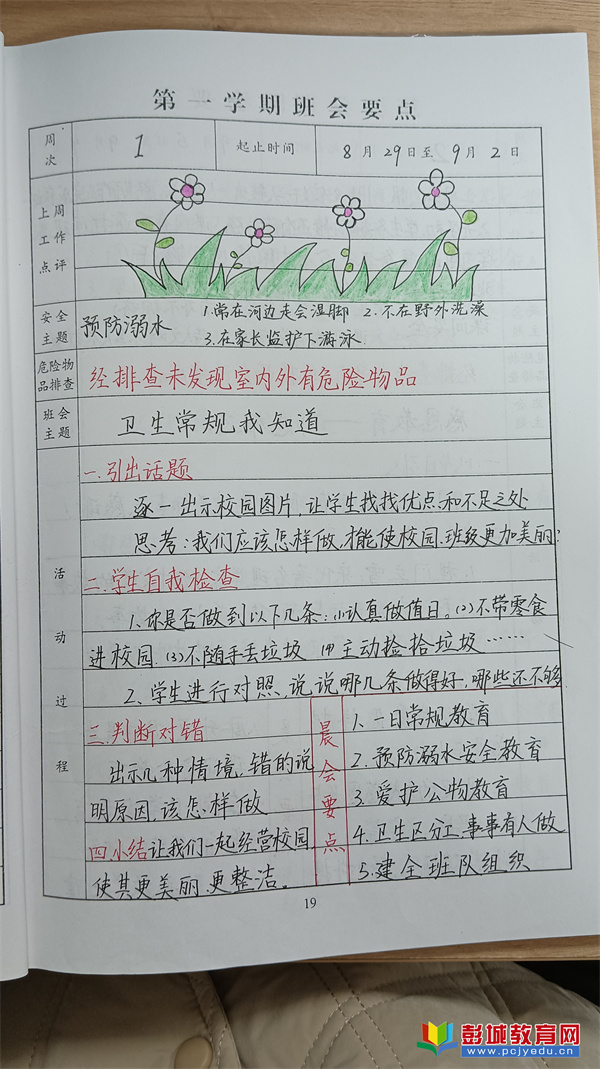 第一学期班会要点
周次 1 起止时间 8月29日至9月2日
上周工作点评
安全主题 预防溺水 1.常在河边走会湿脚 2.不在野外洗澡
3.在家长监护下游泳.
危险物品排查 经排查未发现室内外有危险物品
班会主题 卫生常规我知道
活动过程
一.引出话题
逐一出示校园图片,让学生找找优点和不足之处.
思考:我们应该怎样做,才能使校园.班级更加美丽?
二.学生自我检查
1.你是否做到以下几条:(1)认真做值日.(2)不带零食
进校园.(3)不随手丢垃圾 (4)主动捡拾垃圾……
2.学生进行对照,说说哪几条做得好,哪些还不够.
三.判断对错
出示几种情境,错的说
明原因,该怎样做
四.小结让我们一起经营校园,
使其更美丽.更整洁。
晨会要点
1.一日常规教育
2.预防溺水安全教育
3.爱护公物教育
4.卫生区分工,事事有人做
5.建全班队组织
19
彭城教育网
www.pcjyedu.cn